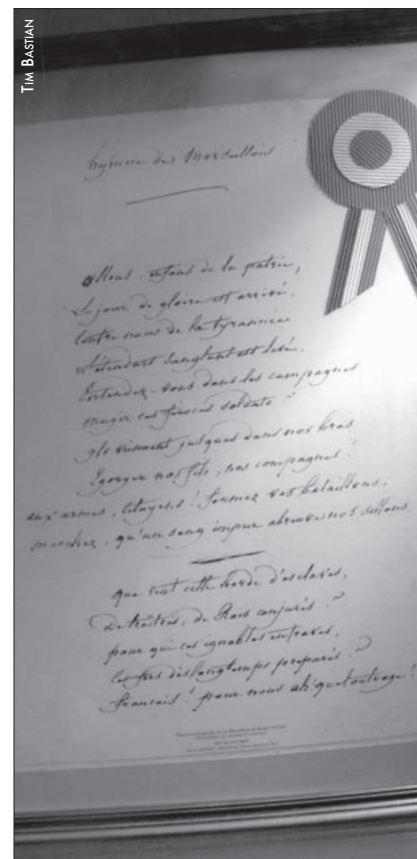 TIM BASTIAN
hymne des Marseillois
Allons enfans de la patrie,
Le jour de gloire est arrivé.
Contre nous de la tyrannie
L'étendart sanglant est levé.
Entendez-vous dans les campagnes
mugir ces féroces soldats ?
ils viennent jusques dans vos bras
Egorger vos fils, vos compagnes !
aux armes, citoyens ! formez vos bataillons.
marchez, qu'un sang impur abreuve nos sillons.
que veut cette horde d'esclaves,
De traîtres, de Rois conjurés ?
pour qui ces ignobles entraves,
ces fers dès longtemps préparés ?
français ! pour nous ah! quel outrage !